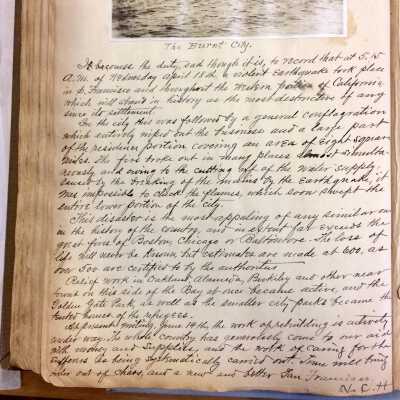 The Burnt City.
It becomes the duty, sad though it is, to record that at 5.15
A.M. of Wednesday April 18th a violent Earthquake took place
in S. Francisco and throughout the Western portion of California
which will stand in history as the most destructive of any
since its settlement.
In the city this was followed by a general conflagration
which entirely wiped out the business and a large part
of the residence portion covering an area of Eight Square
miles. The fire broke out in many places almost simulta-
neously and owing to the cutting off of the water supply
caused by the breaking of the mains by the Earthquake, it
was impossible to check the flames, which soon swept the
entire lower portion of the city.
This disaster is the most appalling of any similar one
in the history of the country, and in extent far exceeds the
great fires of Boston, Chicago or Baltimore. The loss of
life will never be known but estimates are made at 600, as
over 500 are certified to by the authorities
Relief work in Oakland, Alameda, Berkeley and other near
towns on this side of the Bay at once became active, and the
Golden Gate Park, as well as the smaller city parks became the
tented homes of the refugees.
At present writing, June 14th the work of rebuilding is actively
under way. The whole country has generously come to our aid
with money and supplies, and the work of caring for the
sufferers is being systematically carried out. Time will bring
order out of chaos, and a new and better San Francisco.
V. C. H